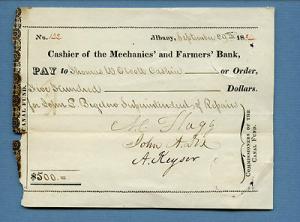 No. 122 Albany, September 20th 18
Cashier of the Mechanics' and Farmers' Bank,
PAY to Thomas W Olcott Cashier or Order,
Five Hundred Dollars.
for John S. Superintendent of Repairs
CANAL FUND.
John A. Dix
A. Keyser
COMMISSIONERS OF THE CANAL FUND.
$500.=